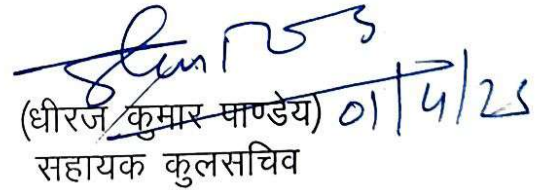 (धीरज कुमार पाण्डेय) 01/4/25
सहायक कुलसचिव